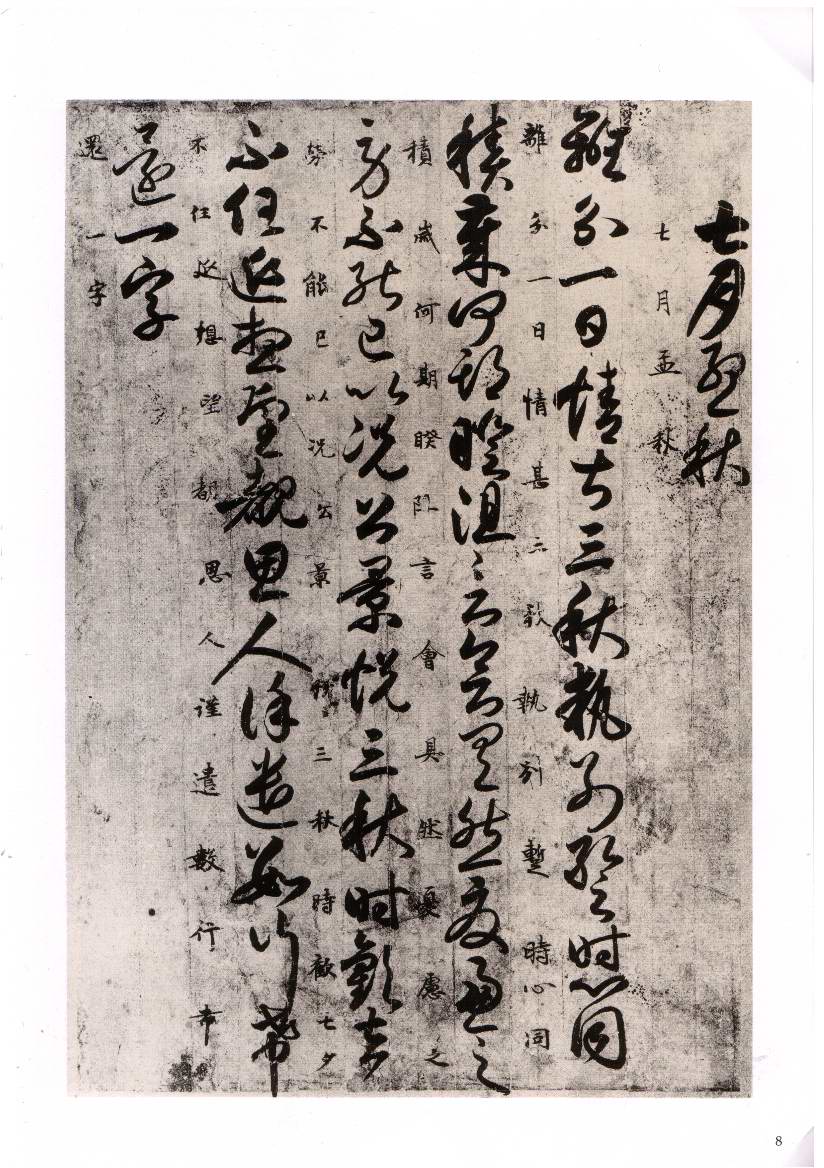 七月孟秋
七月孟秋
離分一日情甚三秋執別暫時心同
離分一日情甚三秋執別暫時心同
積歲何期睽阻言會具然憂慮之
積歲何期睽阻言會具然憂慮之
勞不能已以況公景悦三秋時歡七夕
勞不能已以況公景悦三秋時歡七夕
不任延想望都思人謹遣數行希
不任延想望都思人謹遣數行希
還一字
還一字
8